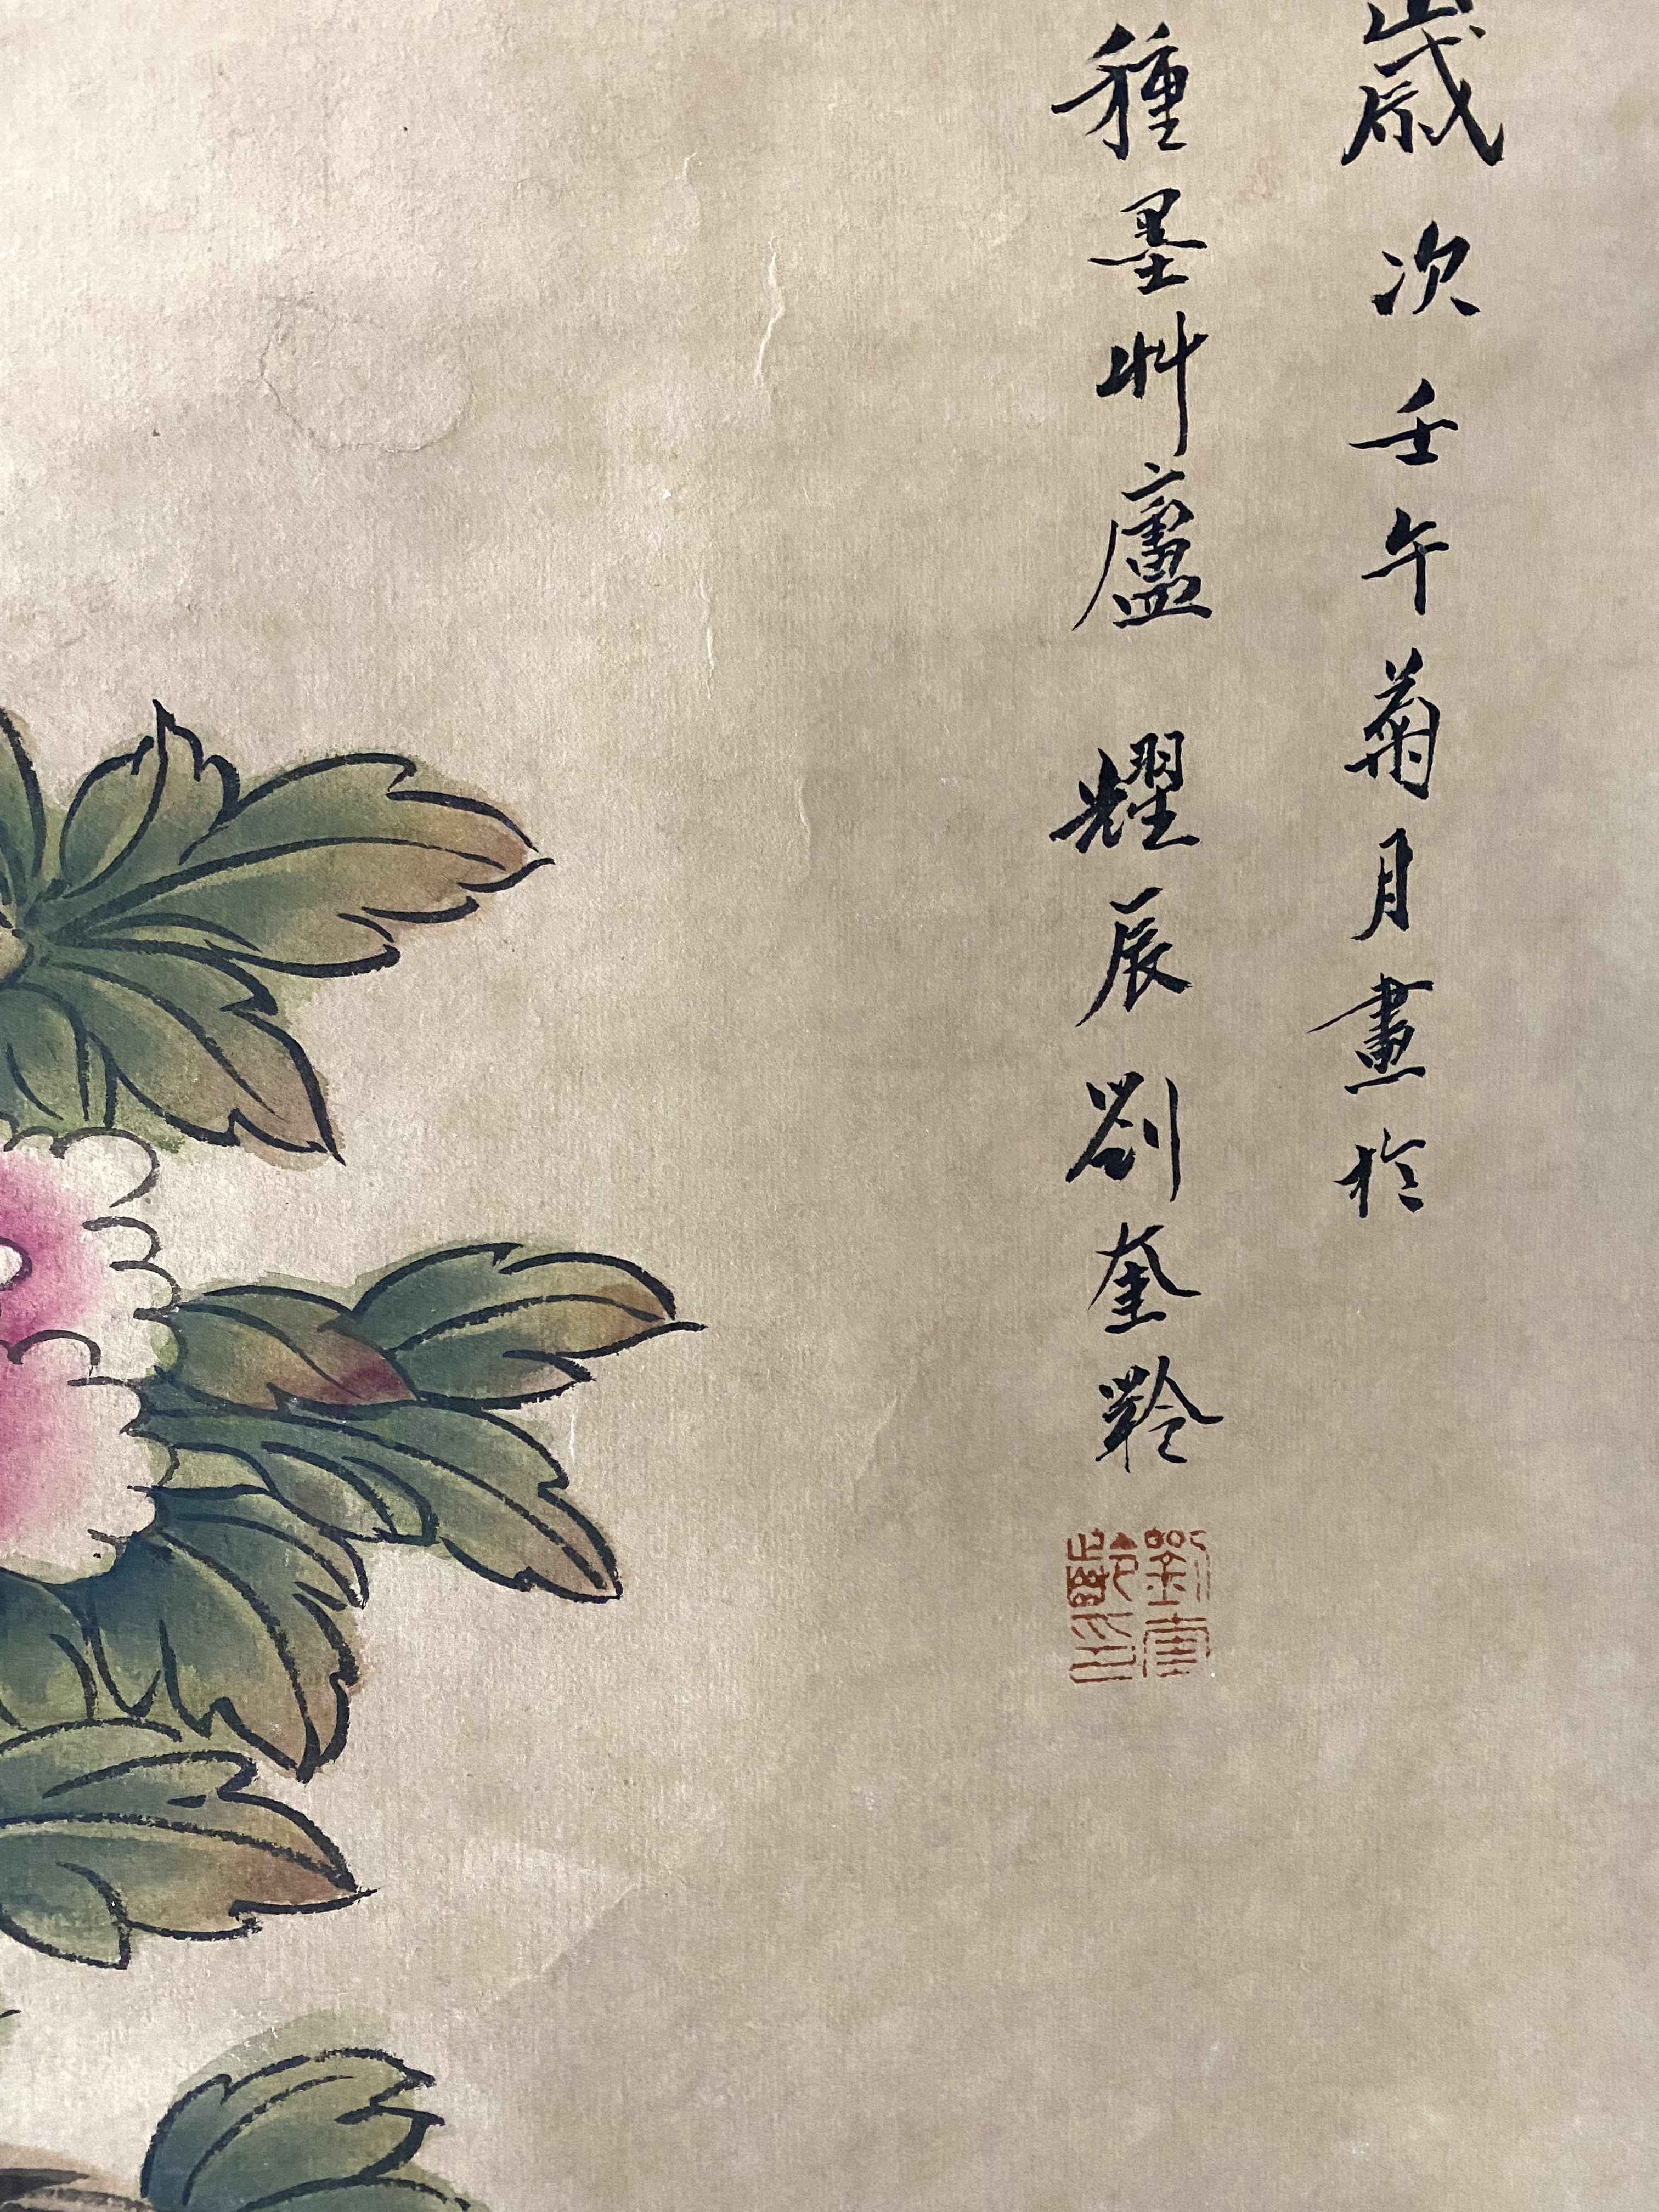 歲次壬午菊月畫於
種墨艸廬耀辰劉奎齡
劉奎齡印